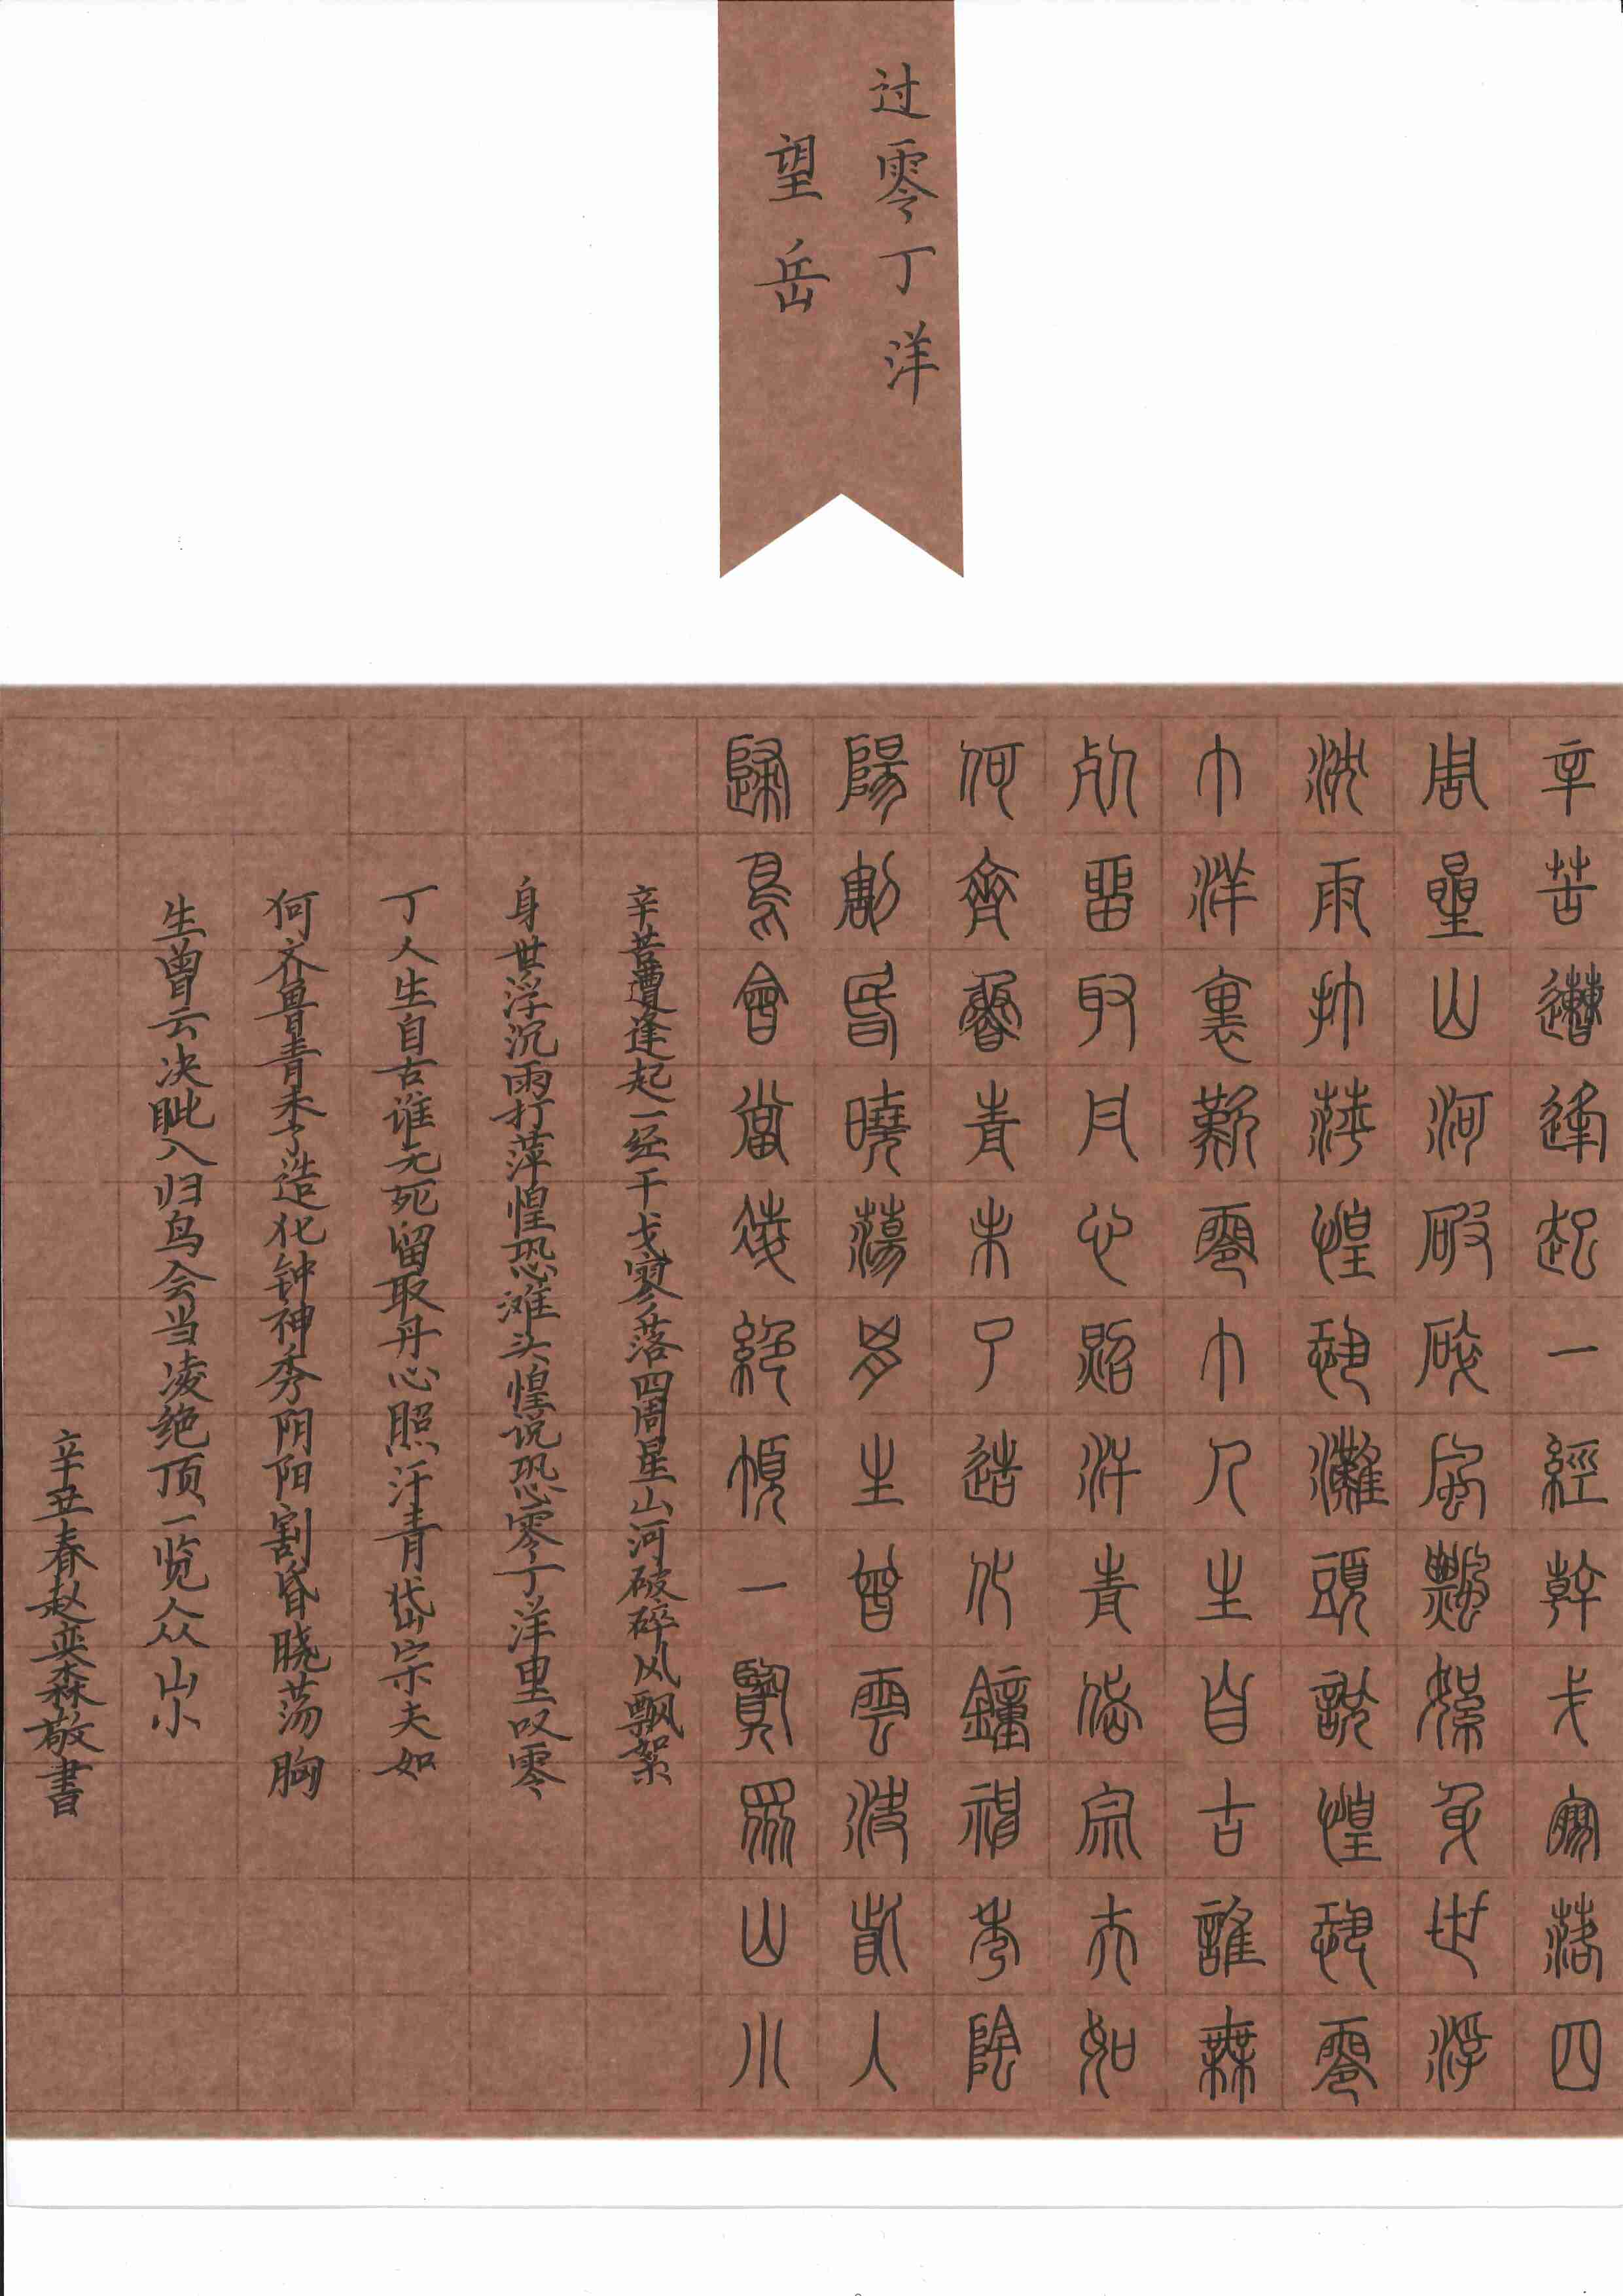 过零丁洋
望岳
辛苦遭逢起一經幹戈寥落四
周星山河破碎風飄絮身世浮
沈雨打萍惶恐灘頭說惶恐零
丁洋裏歎零丁人生自古誰無
死留取丹心照汗青岱宗夫如
何齊魯青未了造化鐘神秀陰
陽割昏曉蕩胸生曾雲決眥入
歸鳥會當凌絕頂一覽眾山小
辛苦遭逢起一经干戈寥落四周星山河破碎风飘絮
身世浮沉雨打萍惶恐滩头惶说恐零丁洋里叹零
丁人生自古谁无死留取丹心照汗青岱宗夫如
何齐鲁青未了造化钟神秀阴阳割昏晓荡胸
生曾云决眦入归鸟会当凌绝顶一览众山小
辛丑春赵奕森敬書